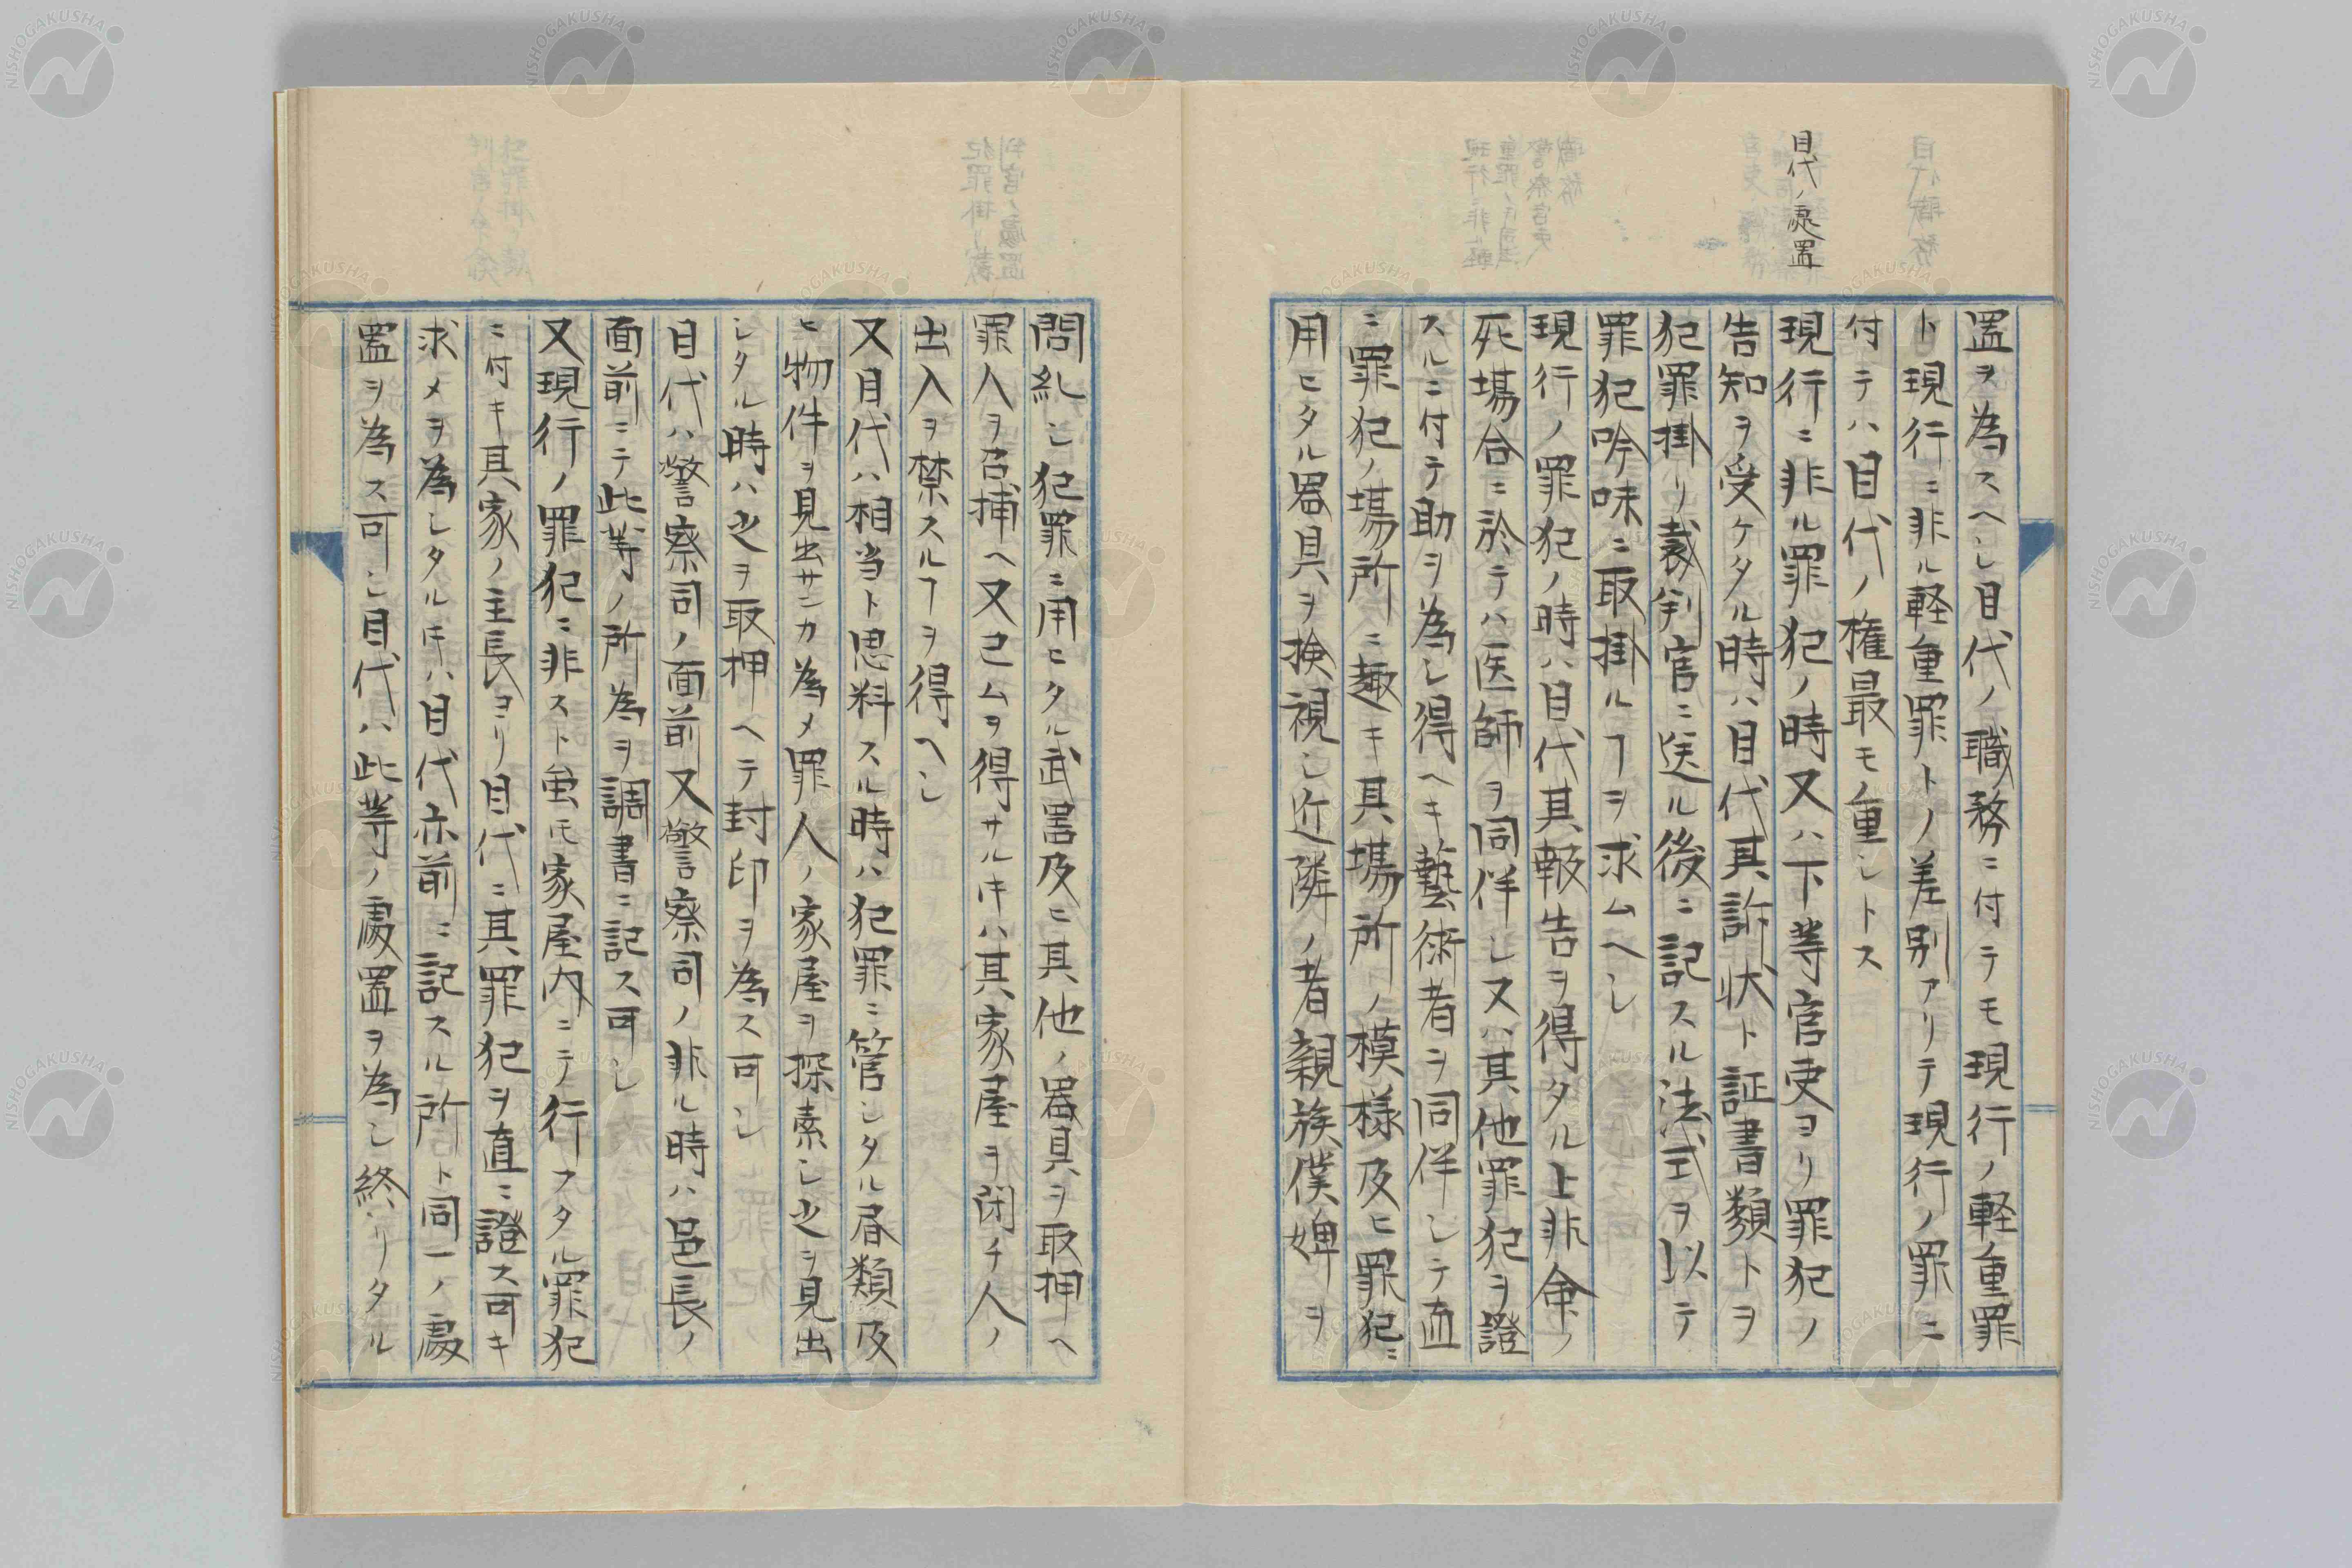 目代ノ處置
置ヲ為スヘシ目代ノ職務ニ付テモ現行ノ軽重罪
ト現行ニ非ル軽重罪トノ差別アリテ現行ノ罪ニ
付テハ目代ノ権最モ重シトス
現行ニ非ル罪犯ノ時又ハ下等官吏ヨリ罪犯ノ
告知ヲ受ケタル時ハ目代其訴状ト証書類トヲ
犯罪掛リ裁判官ニ送ル後ニ記スル法式ヲ以テ
罪犯吟味ニ取掛ルヿヲ求ムヘシ
現行ノ罪犯ノ時ハ目代其報告ヲ得タル上非命ノ
死塲合ニ於テハ医師ヲ同伴シ又ハ其他罪犯ヲ證
スルニ付テ助ヲ為シ得ヘキ藝術者ヲ同伴シテ直
ニ罪犯ノ塲所ニ趣キ其塲所ノ模様及ヒ罪犯ニ
用ヒタル器具ヲ検視シ近隣ノ者親族僕婢ヲ
問糺シ犯罪ニ用ヒタル武器及ヒ其他ノ器具ヲ取押ヘ
罪人ヲ召捕ヘ又已ムヲ得サル𬼀ハ其家屋ヲ閉チ人ノ
出入ヲ禁スルヿヲ得ヘシ
又目代ハ相当ト思料スル時ハ犯罪ニ管シタル書類及
ヒ物件ヲ見出サンカ為メ罪人ノ家屋ヲ探索シ之ヲ見出
シタル時ハ之ヲ取押ヘテ封印ヲ為ス可シ
目代ハ警察司ノ面前又警察司ノ非ル時ハ邑長ノ
面前ニテ此等ノ所為ヲ調書ニ記ス可シ
又現行ノ罪犯ニ非スト虽𪜈家屋内ニテ行フタル罪犯
ニ付キ其家ノ主長ヨリ目代ニ其罪犯ヲ直ニ證ス可キ
求メヲ為シタル𪜈ハ目代亦前ニ記スル所ト同一ノ處
置ヲ為ス可シ目代ハ此等ノ處置ヲ為シ終リタル
NISHOGAKUSHA